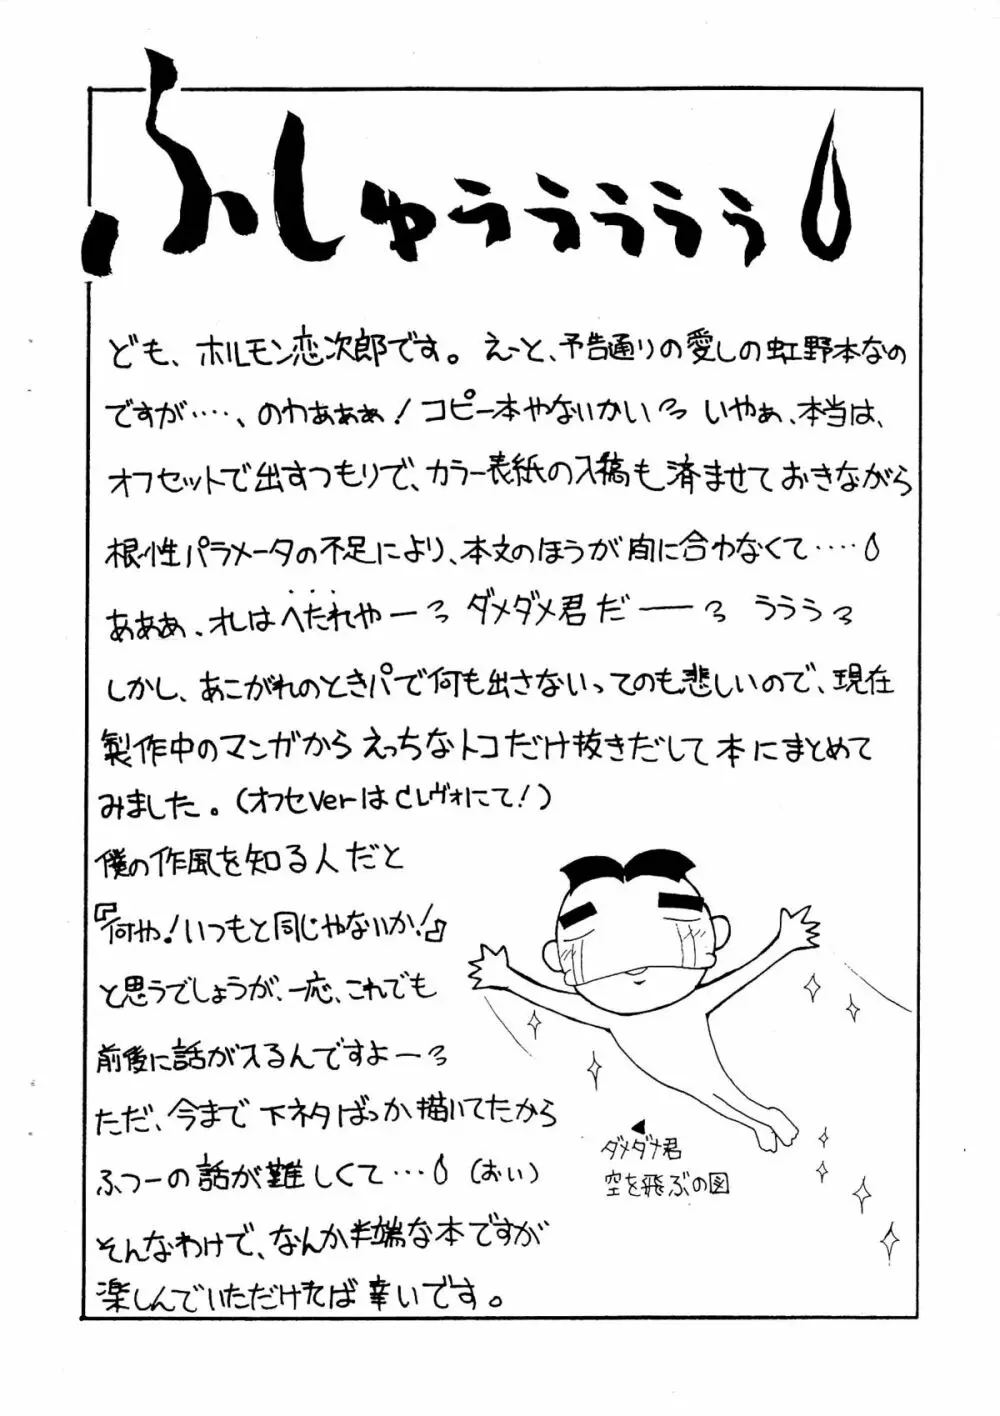 ふしゅぅぅぅぅぅ
ども、ホルモン恋次郎です。えーと、予告通りの愛しの虹野本なの
ですが‥‥、のわぁぁぁ!コピー本やないかいっ いやぁ、本当は、
オフセットで出すつもりで、カラー表紙の入稿も済ませておきながら
根性パラメータの不足により、本文のほうが間に合わなくて‥‥
あぁぁぁ、オレはへたれやーっ ダメダメ君だーーっ うぅぅぅっ
しかし、あこがれのときパで何も出さないってのも悲しいので、現在
製作中のマンガからえっちなトコだけ抜きだして本にまとめて
みました。(オフセVerはCレヴォにて!)
僕の作風を知る人だと
『何や!いつもと同じやないか!』
と思うでしょうが、一応、これでも
前後に話が入るんですよーっ
ただ、今まで下ネタばっか描いてたから
ふつーの話が難しくて‥‥ (おい)
そんなわけで、なんか半端な本ですが
楽しんでいただければ幸いです。
◀
ダメダメ君
空を飛ぶの図